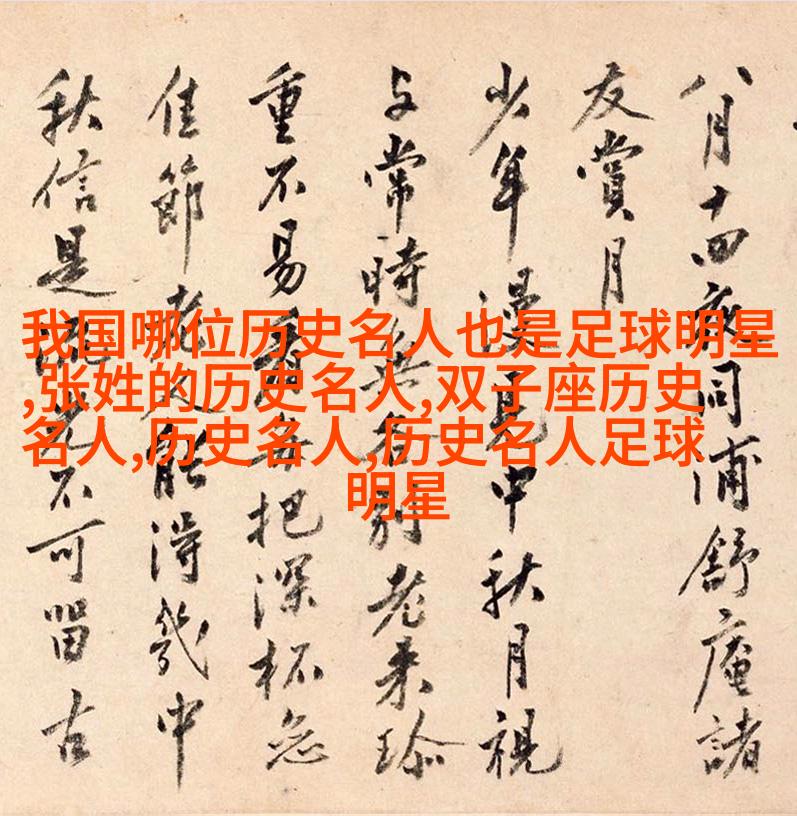 八月十四夜同浦舒庵諸
友賞月
少年漫見中秋月視
与常時無別老来珍
重不易把深杯
佳節老人能得幾中
秋信是光不可留古
我国哪位历史名人也是足球明星
,张姓的历史名人,双子座历史
名人,历史名人,历史名人足球
明星